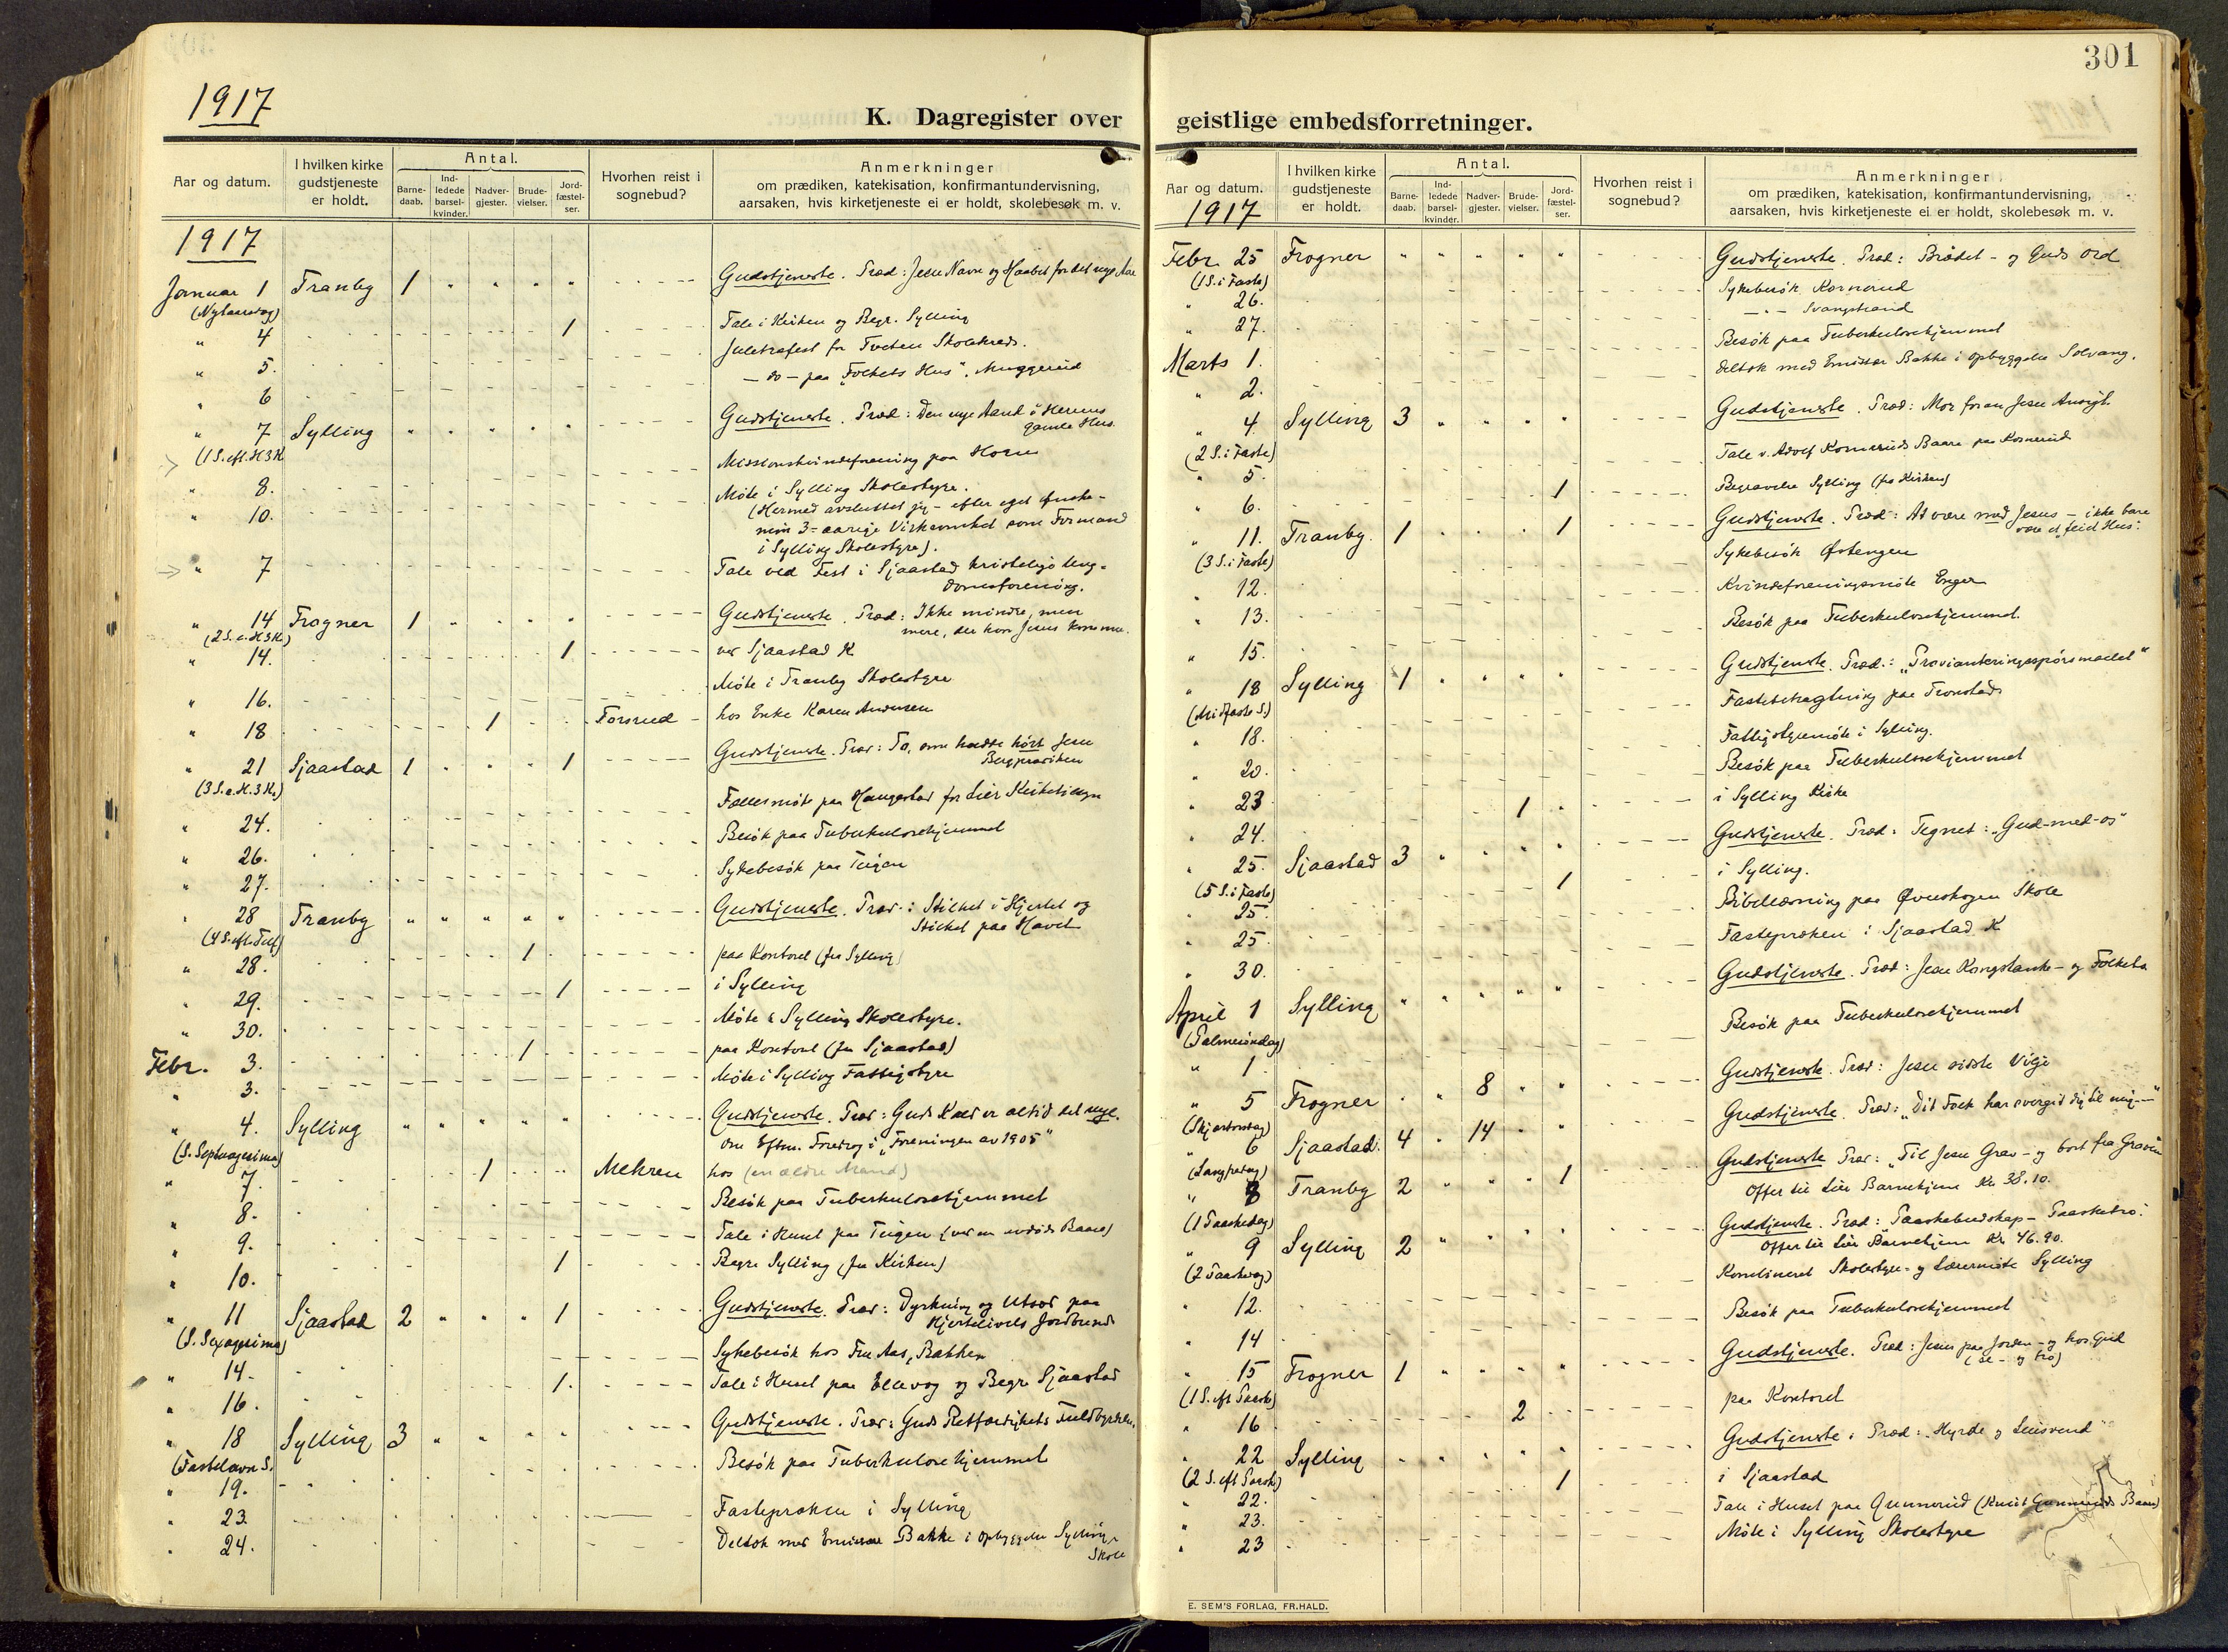 301
1917
K. Dagregister over geistlige embedsforretninger.
Aar og datum. I hvilken kirke gudstjeneste er holdt. Antal. Barnedaab. Indledede barselkvinder. Nadvergjester. Brudevielser. Jordfæstelser. Hvorhen reist i sognebud? Anmerkninger om prædiken, katekisation, konfirmantundervisning, aarsaken, hvis kirketjeneste ei er holdt, skolebesøk m. v.
1917
Januar 1 Tranby 1 " " " " Gudstjeneste. Præd: Jesu Navn og Haabet for det nye Aar
(Nytaarsdag)
" 4 1 Tale i Kirken og Begr. Sylling
" 5. Juletræfest for Tveten Skolekreds.
" 6 — do — paa "Folkets Hus", Muggerud
" 7 Sylling " " " " " Gudstjeneste. Præd: Den nye Aand i Herrens
gamle Hus.
(1 S. eft. H3K
" 8. Missionskvindeforening paa Horn
" 10. Møte i Sylling Skolestyre.
(Hermed avsluttet jeg - efter eget Ønske -
min 3-aarige Virksomhet som Formand
i Sylling Skolestyre).
" 7 Tale ved Fest i Sjaastad kristelige Ung-
domsforening.
" 14 Frogner 1 " " " " Gudstjeneste. Præd: Ikke mindre, men
mere, der hvor Jesus kommer.
(2 S. e. H3K.)
" 14. 1 ved Sjaastad K
" 16. Møte i Tranby Skolestyre
" 18 1 Forsrud hos Enke Karen Andersen
" 21 Sjaastad 1 " " " 1 Gudstjeneste. Præd: To, som hadde hørt Jesu
Bergprædiken
(3 S. e. H. 3 K.)
" 24. Fællesmøte paa Haugestad for Lier Kirketilsyn
" 26. Besøk paa Tuberkulosehjemmet
" 27. Sykebesøk paa Teigen
" 28 Tranby " " " " " Gudstjeneste. Præd: Stilhet i Hjertet og
Stilhet paa Havet
" 28. 1 paa Kontoret (fra Sylling)
" 29. 1 i Sylling
" 30. Møte i Sylling Skolestyre.
Febr. 3. 1 paa Kontoret (fra Sjaastad)
" 3. Møte i Sylling Fattigstyre
" 4. Sylling " " " " " Gudstjeneste. Præd: Guds Kald er altid det nye.
Om Eftm. Foredrag i "Foreningen av 1905"
(S. Septuagesima)
" 7. 1 Mehren hos (en ældre Mand)
" 8. Besøk paa Tuberkulosehjemmet
" 9. Tale i Huset paa Teigen
" 10. 1 Begr. Sylling (fra Kirken)
" 11 Sjaastad 2 " " " 1 Gudstjeneste. Præd: Dyrkning og Utsæd paa
Hjertelivets Jordbund
(S. Sexagesima)
" 14. Sykebesøk hos Fru Aas, Bakken
" 16. 1. Tale i Huset paa Ellevog og Begr. Sjaastad
" 18 Sylling 3 " " " " Gudstjeneste. Præd: Guds Retfærdighets Fuldbyrdelse.
(Fastelavn S.
" 19. Besøk paa Tuberkulosehjemmet
" 23. Fasteprøken i Sylling
" 24. Deltok med Emissær Bakke i opbyggelse Sylling
Skole
Aar og datum. I hvilken kirke gudstjeneste er holdt. Antal. Barnedaab. Indledede barselkvinder. Nadvergjester. Brudevielser. Jordfæstelser. Hvorhen reist i sognebud? Anmerkninger om prædiken, katekisation, konfirmantundervisning, aarsaken, hvis kirketjeneste ei er holdt, skolebesøk m. v.
1917
Febr. 25 Frogner " " " " " Gudstjeneste. Præd: Brødet - og Guds Ord
(1 S. i Faste)
" 26. Sykebesøk Kornerud
" 27. — " — Svangstrand
Marts 1. Besøk paa Tuberkulosehjemmet
" 2. deltok med Emissær Bakke i opbyggelse Solvang.
" 4 Sylling 3 " " " " Gudstjeneste. Præd: Mor foran Jesu Ansigt
(2 S. i Faste)
" 5. Tale v. Adolf Korneruds Baare paa Kornerud
" 6. 1 Begravelse Sylling (fra Kirken)
" 11. Tranby. 1 " " " 1 Gudstjeneste. Præd: At være med Jesus - ikke bare
være et feiet Hus".
(3 S. i Faste)
" 12. Sykebesøk Østengen
" 13. Kvindeforeningsmøte Enger
" 15. Besøk paa Tuberkulosehjemmet.
" 18 Sylling 1 " " " " Gudstjeneste. Præd.: "Provianteringsspørsmaalet"
(Midfaste S.)
" 18. Fastebetragtning paa Tronstad
" 20. Fattigstyremøte i Sylling.
" 23 Besøk paa Tuberkulosehjemmet
" 24. 1 i Sylling Kirke
" 25. Sjaastad 3 " " " " Gudstjeneste. Præd: Tegnet: "Gud-med-os"
(5 S. i Faste)
" 25. 1 i Sylling.
" 25. Bibellæsning paa Øvenskogen Skole
" 30. Fasteprøken i Sjaastad K
April 1 Sylling " " " " " Gudstjeneste. Præd: Jesu Kongstanke - og Folkets
(Palmesøndag)
" 1 Besøk paa Tuberkulosehjemmet
" 5 Frogner " " 8 " " Gudstjeneste. Præd: Jesu sidste Vilje
(Skjærtorsdag)
" 6 Sjaastad. 4 " 14 " " Gudstjeneste. Præd: "Dit Folk har overgit dig til mig—"
(Langfredag)
" 8 Tranby 2 " " " 1 Gudstjeneste Præd: "Til Jesu Grav - og bort fra Graven
Offer til Lier Barnehjem Kr. 38.10.
(1 Paaskedag)
" 9 Sylling 2 " " " " Gudstjeneste. Præd: "Paaskebudskap - Paasketro".
Offer til Lier Barnehjem Kr. 46.90.
(2 Paaskedag)
" 12. Kombineret Skolestyre- og Lærermøte Sylling
" 14 Besøk paa Tuberkulosehjemmet
" 15 Frogner 1 " " " " Gudstjeneste. Præd: Jesus paa Jorden - og hos Gud
(se - og tro)
(1 S. eft Paaske)
" 16 2 paa Kontoret
" 22 Sylling " " " " " Gudstjeneste. Præd: "Hyrde og Leiesvend"
(2 S. eft Paaske)
" 22. 1 i Sjaastad
" 23. Tale i Huset paa Gunnerud (Knut Gunneruds Baare)
" 23 Møte i Sylling Skolestyre
E. SEM'S FORLAG, FR.HALD.